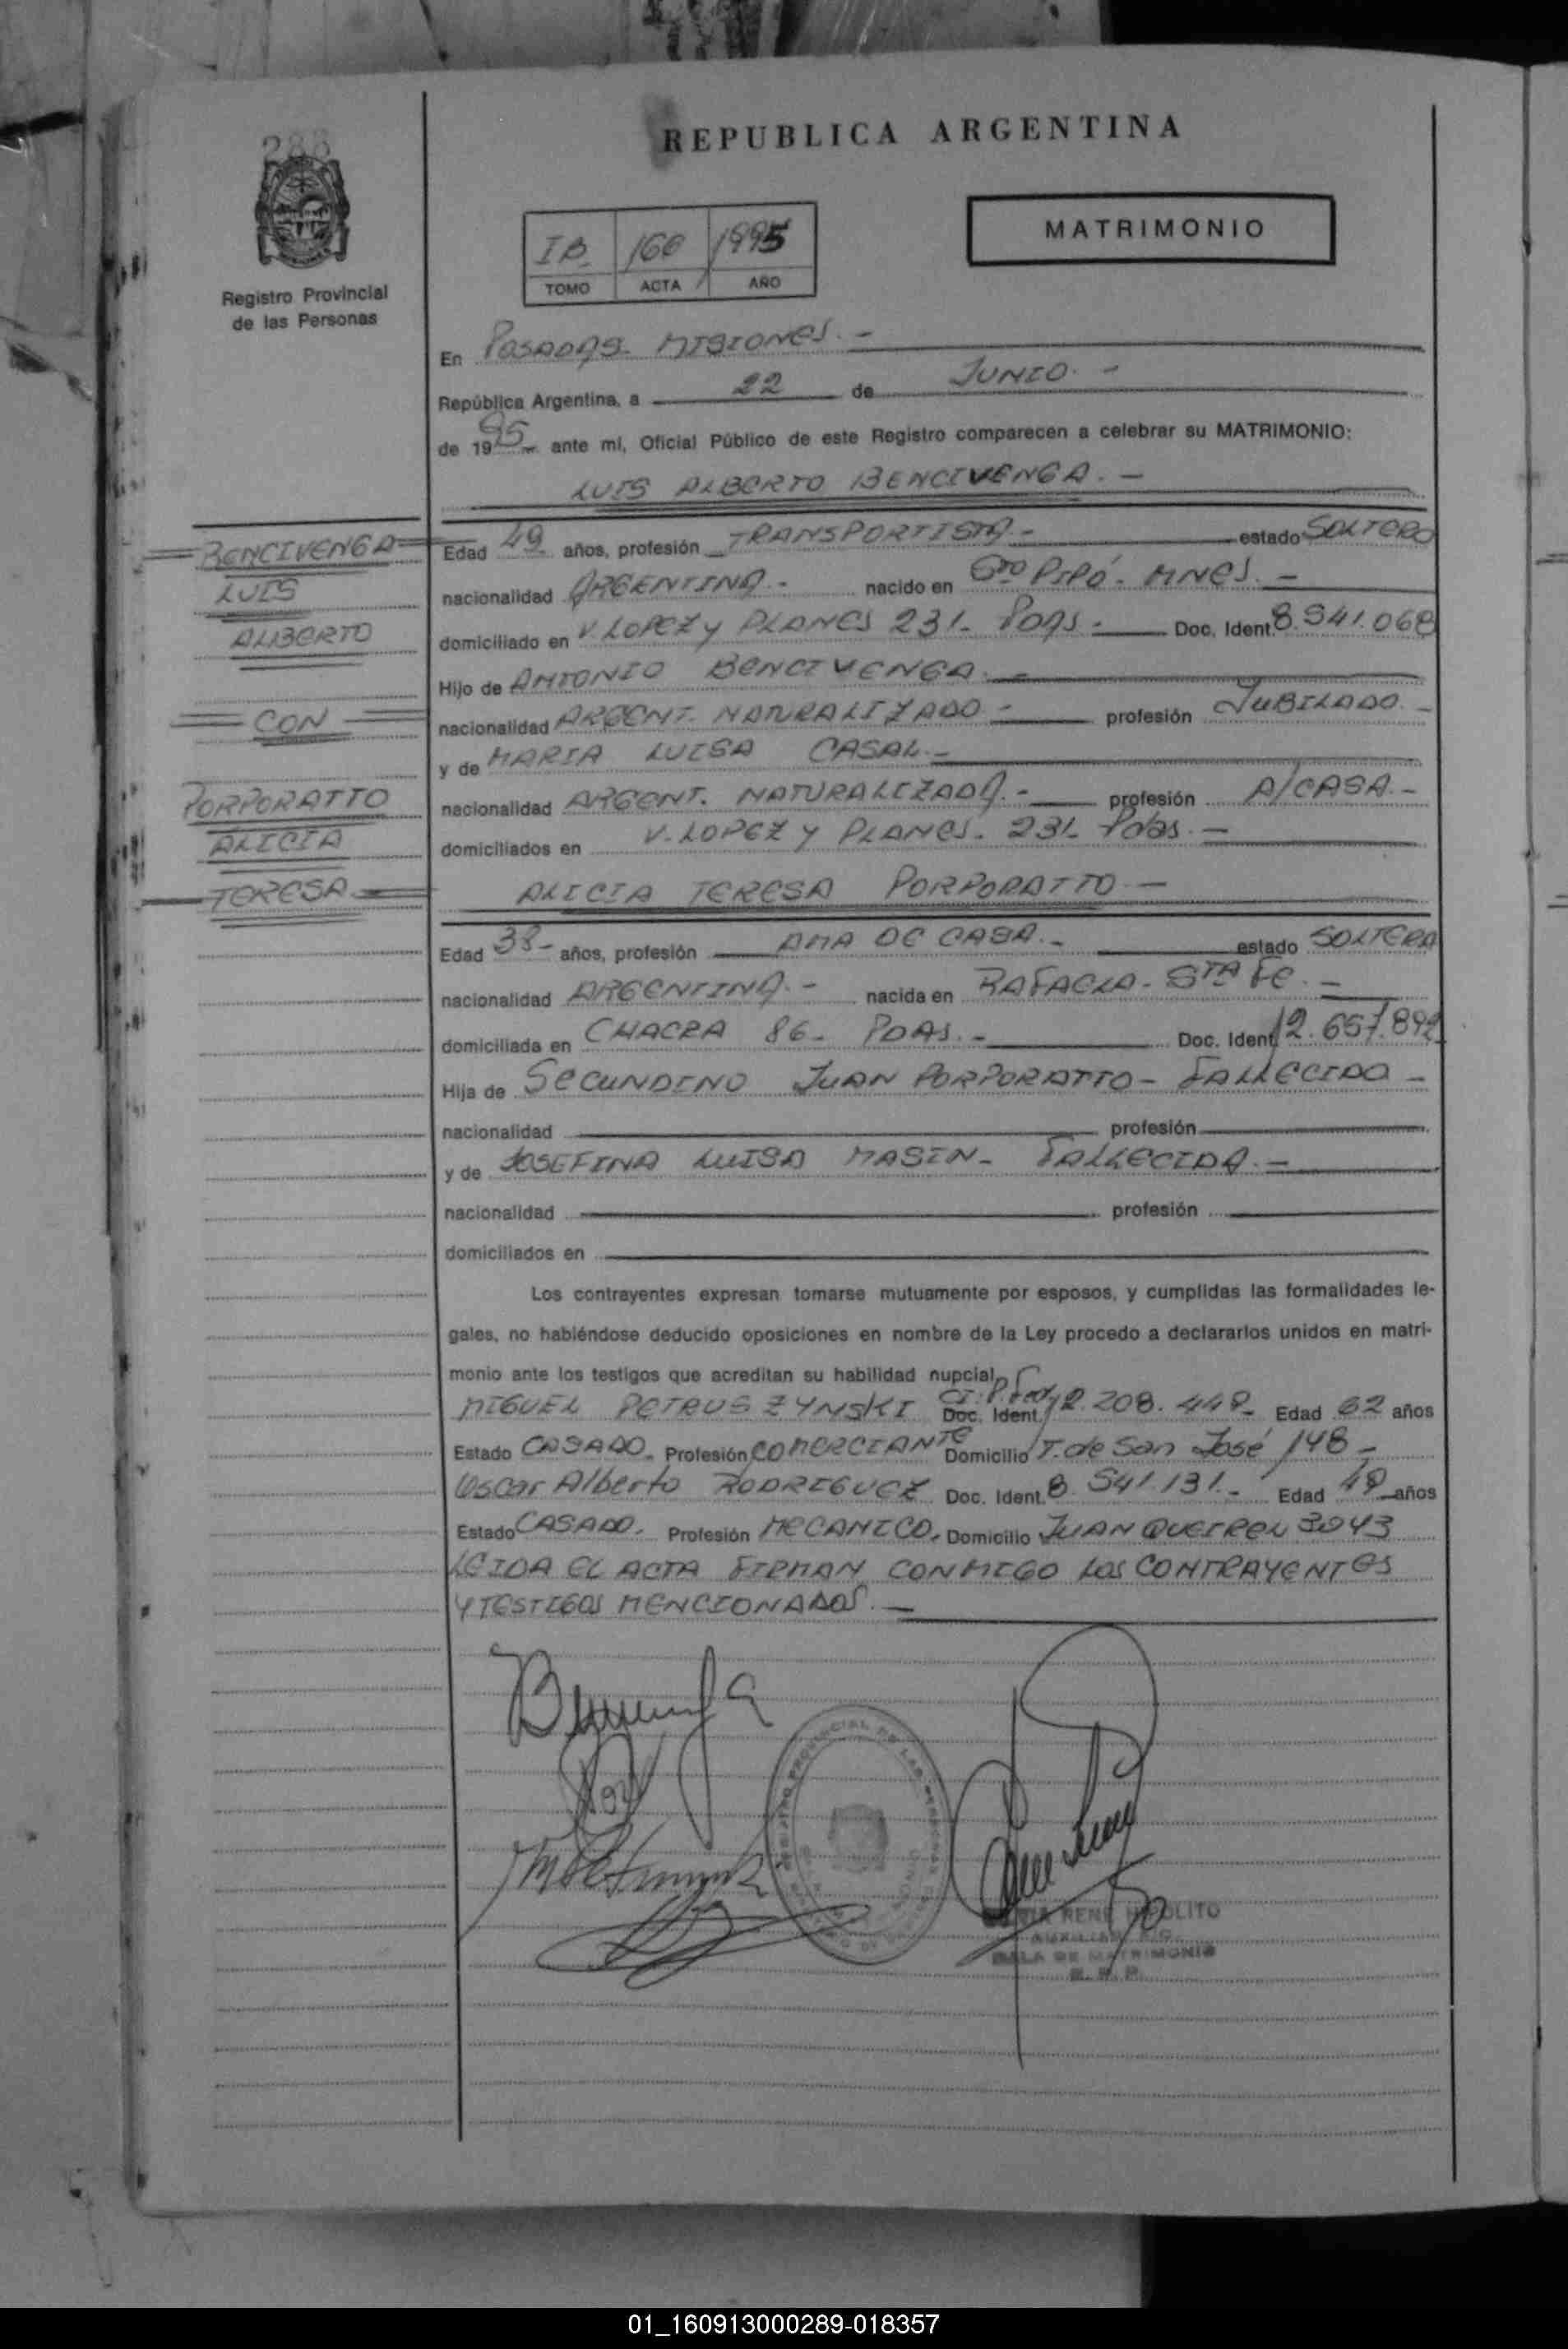 288
REPUBLICA ARGENTINA
MATRIMONIO
IB. 160 1995
TOMO ACTA AÑO
Registro Provincial
de las Personas
En POSADAS- MISIONES.-
República Argentina, a 22 de JUNIO.-
de 1995- ante mí, Oficial Público de este Registro comparecen a celebrar su MATRIMONIO:
LUIS ALBERTO BENCIVENGA.-
BENCIVENGA
LUIS
ALBERTO
CON
PORPORATTO
ALICIA
TERESA
Edad 49 años, profesión TRANSPORTISTA.- estado SOLTERO
nacionalidad ARGENTINA.- nacido en Gdro PIPÓ- MNES.-
domiciliado en V. LOPEZ y PLANES 231- Pdas.- Doc. Ident. 8.541.068
Hijo de ANTONIO BENCIVENGA.-
nacionalidad ARGENT. NATURALIZADO- profesión JUBILADO.-
y de MARIA LUISA CASAL.-
nacionalidad ARGENT. NATURALIZADA.- profesión A/CASA.-
domiciliados en V. LOPEZ y PLANES- 231- Pdas.-
ALICIA TERESA PORPORATTO-
Edad 38- años, profesión AMA DE CASA.- estado SOLTERA
nacionalidad ARGENTINA.- nacida en RAFAELA- STA FE.-
domiciliada en CHACRA 86- PDAS.- Doc. Ident. 12.657.892
Hija de SECUNDINO JUAN PORPORATTO- FALLECIDO-
nacionalidad profesión
y de JOSEFINA LUISA MASIN- FALLECIDA.-
nacionalidad profesión
domiciliados en
Los contrayentes expresan tomarse mutuamente por esposos, y cumplidas las formalidades le-
gales, no habiéndose deducido oposiciones en nombre de la Ley procedo a declararlos unidos en matri-
monio ante los testigos que acreditan su habilidad nupcial
MIGUEL PETRUSZYNSKI Doc. Ident. CI. 12.208.448- Edad 62 años
Estado CASADO. Profesión COMERCIANTE Domicilio T. de San José 148-
Oscar Alberto RODRIGUEZ Doc. Ident. 8.541.131.- Edad 48 años
Estado CASADO. Profesión MECANICO. Domicilio JUAN QUEIREL 3043
LEIDA EL ACTA FIRMAN CONMIGO LOS CONTRAYENTES
Y TESTIGOS MENCIONADOS.-
REGISTRO PROVINCIAL DE LAS PERSONAS
RENE HIPOLITO
AUXILIAR
SALA DE MATRIMONIO
01_160913000289-018357